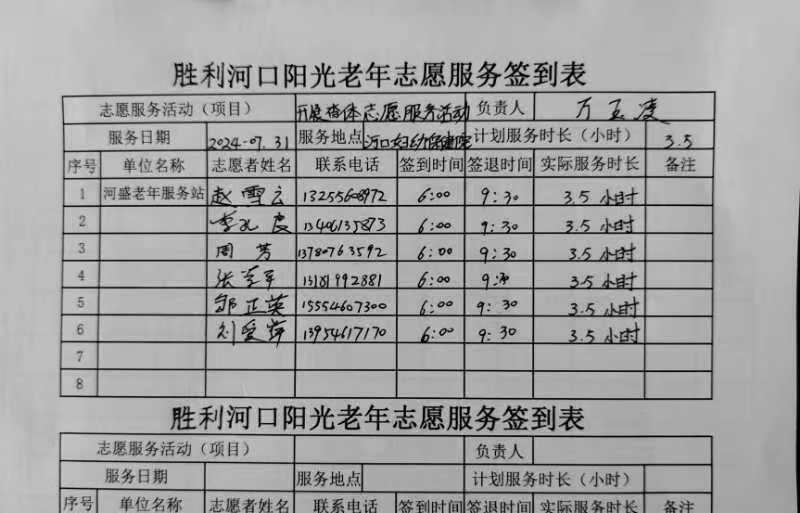 胜利河口阳光老年志愿服务签到表
志愿服务活动（项目） 开展 志愿服务活动 负责人 万玉凌
服务日期 2024-07.31 服务地点 河口妇幼保健院 计划服务时长（小时） 3.5
序号 单位名称 志愿者姓名 联系电话 签到时间 签退时间 实际服务时长 备注
1 河盛老年服务站 赵雪云 13255608972 6:00 9:30 3.5小时
2 13406135873 6:00 9:30 3.5小时
3 周芳 13780763592 6:00 9:30 3.5小时
4 13181992881 6:00 9:30 3.5小时
5 邹正英 15554607300 6:00 9:30 3.5小时
6 刘爱萍 13954617170 6:00 9:30 3.5小时
7
8
胜利河口阳光老年志愿服务签到表
志愿服务活动（项目） 负责人
服务日期 服务地点 计划服务时长（小时）
序号 单位名称 志愿者姓名 联系电话 签到时间 签退时间 实际服务时长 备注